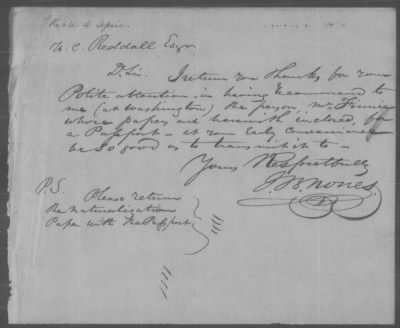 Rec'd 4 April
W. C. Reddall Esqr.
D. Sir I return you thanks for your
Polite attention in having recommend to
me (at Washington) the person, Mr Finnie
whose papers are herewith inclosed for
a Passport - at your Early Convenience
be so good as to transmit it to -
Yours Respectfully
J B Nones
P.S. Please return
the naturalization
Paper with the Passport